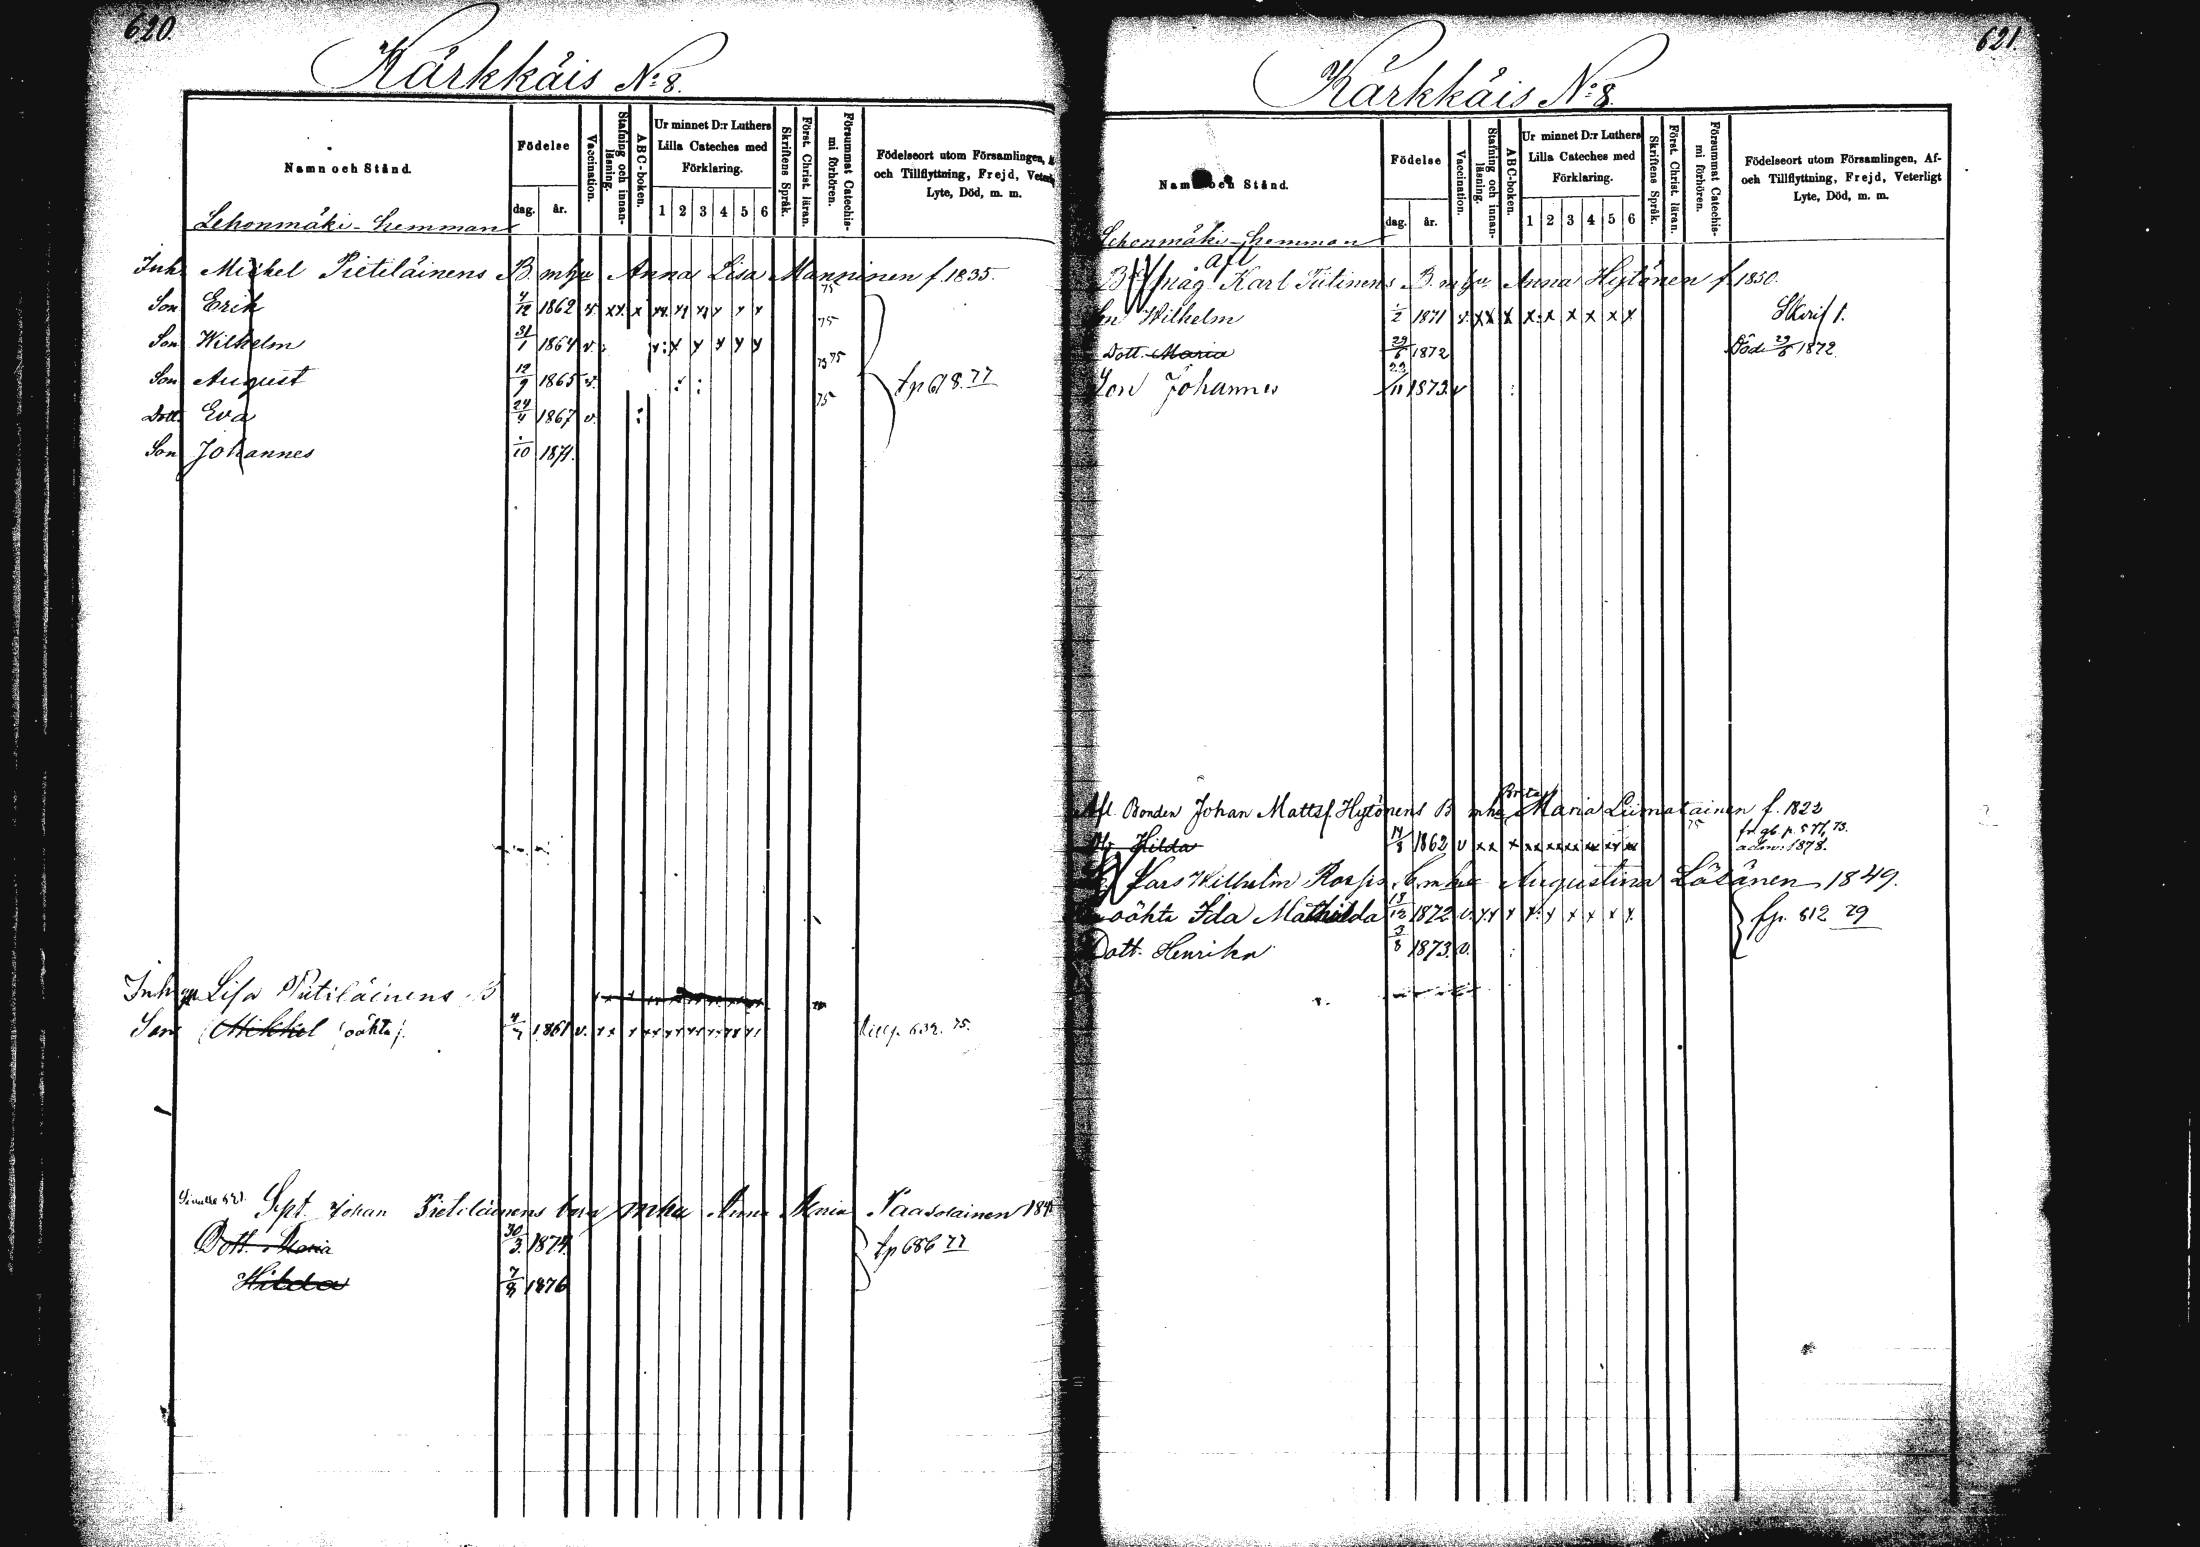 620.
Kärkkäis No 8.
Namn och Stånd.
Födelse
dag. år.
Vaccination.
Stafning och innanläsning.
ABC-boken.
Ur minnet D:r Luthers Lilla Cateches med Förklaring.
1 2 3 4 5 6
Skriftens Språk.
Först. Christ. läran.
Försummat Catechismi förhören.
Födelseort utom Församlingen,
och Tillflyttning, Frejd,
Lyte, Död, m. m.
Lehonmäki-hemman
Inh. Michel Pietiläinens B. mhu Anna Lisa Manninen f. 1835.
Son Erik 4/12 1862 v. xx x xx x x x x x 75
Son Wilhelm 31/1 1864 v. x: x x x x x 75
Son August 12/9 1865 v. : : 75 75
tp 618. 77
Dott. Eva 24/4 1867 v. : 75
Son Johannes /10 1871.
Inh. Lisa Pietiläinens B
Son Mikkel (oähta). 4/7 1861 v. xx x xx xx xx xx xx xx 632. 75.
Sivulle 621. Spt. Johan Pietiläinens barn mhu Anna Maria Naavalainen
Dott. Maria 30/3 1874.
tp 686 77
Hilda 7/8 1876
621.
Kärkkäis No 8.
Namn och Stånd.
Födelse
dag. år.
Vaccination.
Stafning och innanläsning.
ABC-boken.
Ur minnet D:r Luthers Lilla Cateches med Förklaring.
1 2 3 4 5 6
Skriftens Språk.
Först. Christ. läran.
Försummat Catechismi förhören.
Födelseort utom Församlingen, Af-
och Tillflyttning, Frejd, Veterligt
Lyte, Död, m. m.
Lehonmäki-hemman
afl
måg Karl Piitinens B. mhu Anna Hytönen f. 1850.
Son Wilhelm 1/2 1871 v. xx x x: x x x x x
Dott. Maria 29/5 1872 Död 29/6 1872.
Son Johannes 22/11 1873. v :
Brita
Afl Bonden Johan Mattsf. Hytönens B mhu Maria Liimatainen f. 1822
Hilda 14/8 1862 v xx x xx xx xx xx xx xx 75 p. 577, 73.
adm. 1878.
Lars Wilhelm mhu Augustina Lösänen 1849.
oähta Ida Mathilda 13/12 1872 v. xx x x: x x x x x
fp. 812 79
Dott. Henrika 3/8 1873. v. :